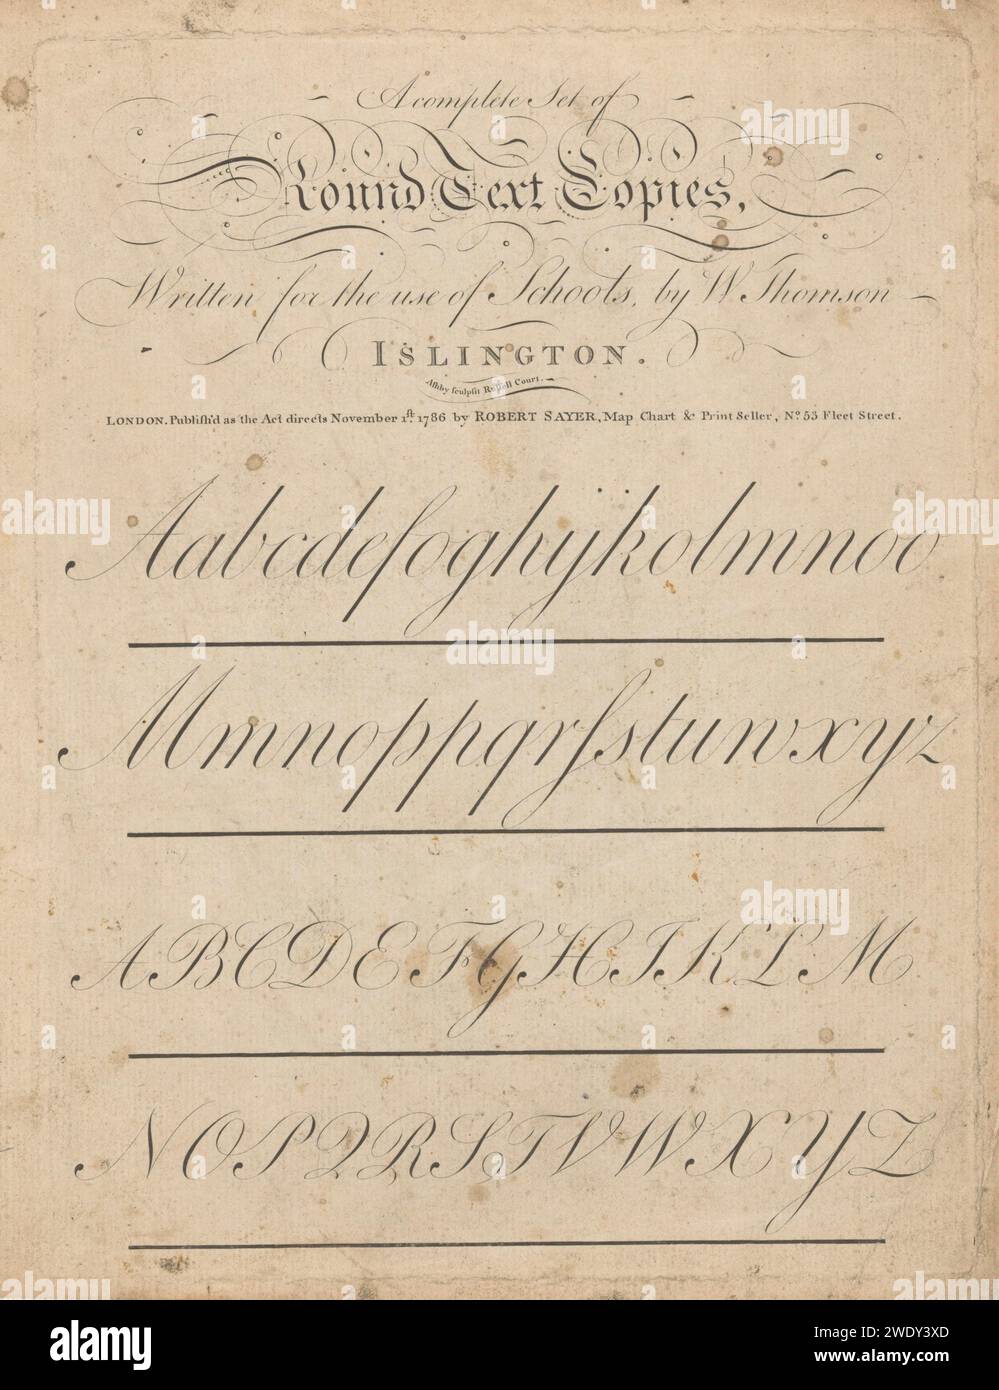 A complete Set of
Round Text Copies,
Written for the use of Schools, by W Thomson
ISLINGTON.
Ashby sculpsit Russell Court.
LONDON. Publish'd as the Act directs November 1st. 1786 by ROBERT SAYER, Map Chart & Print Seller, No. 53 Fleet Street.
Aabcdefoghijkolmnoo
Mmnoppqrſstuwxyz
ABCDEFGHIKLM
NOPQRSTVWXYZ
alamy
Image ID: 2WDY3XD
www.alamy.com